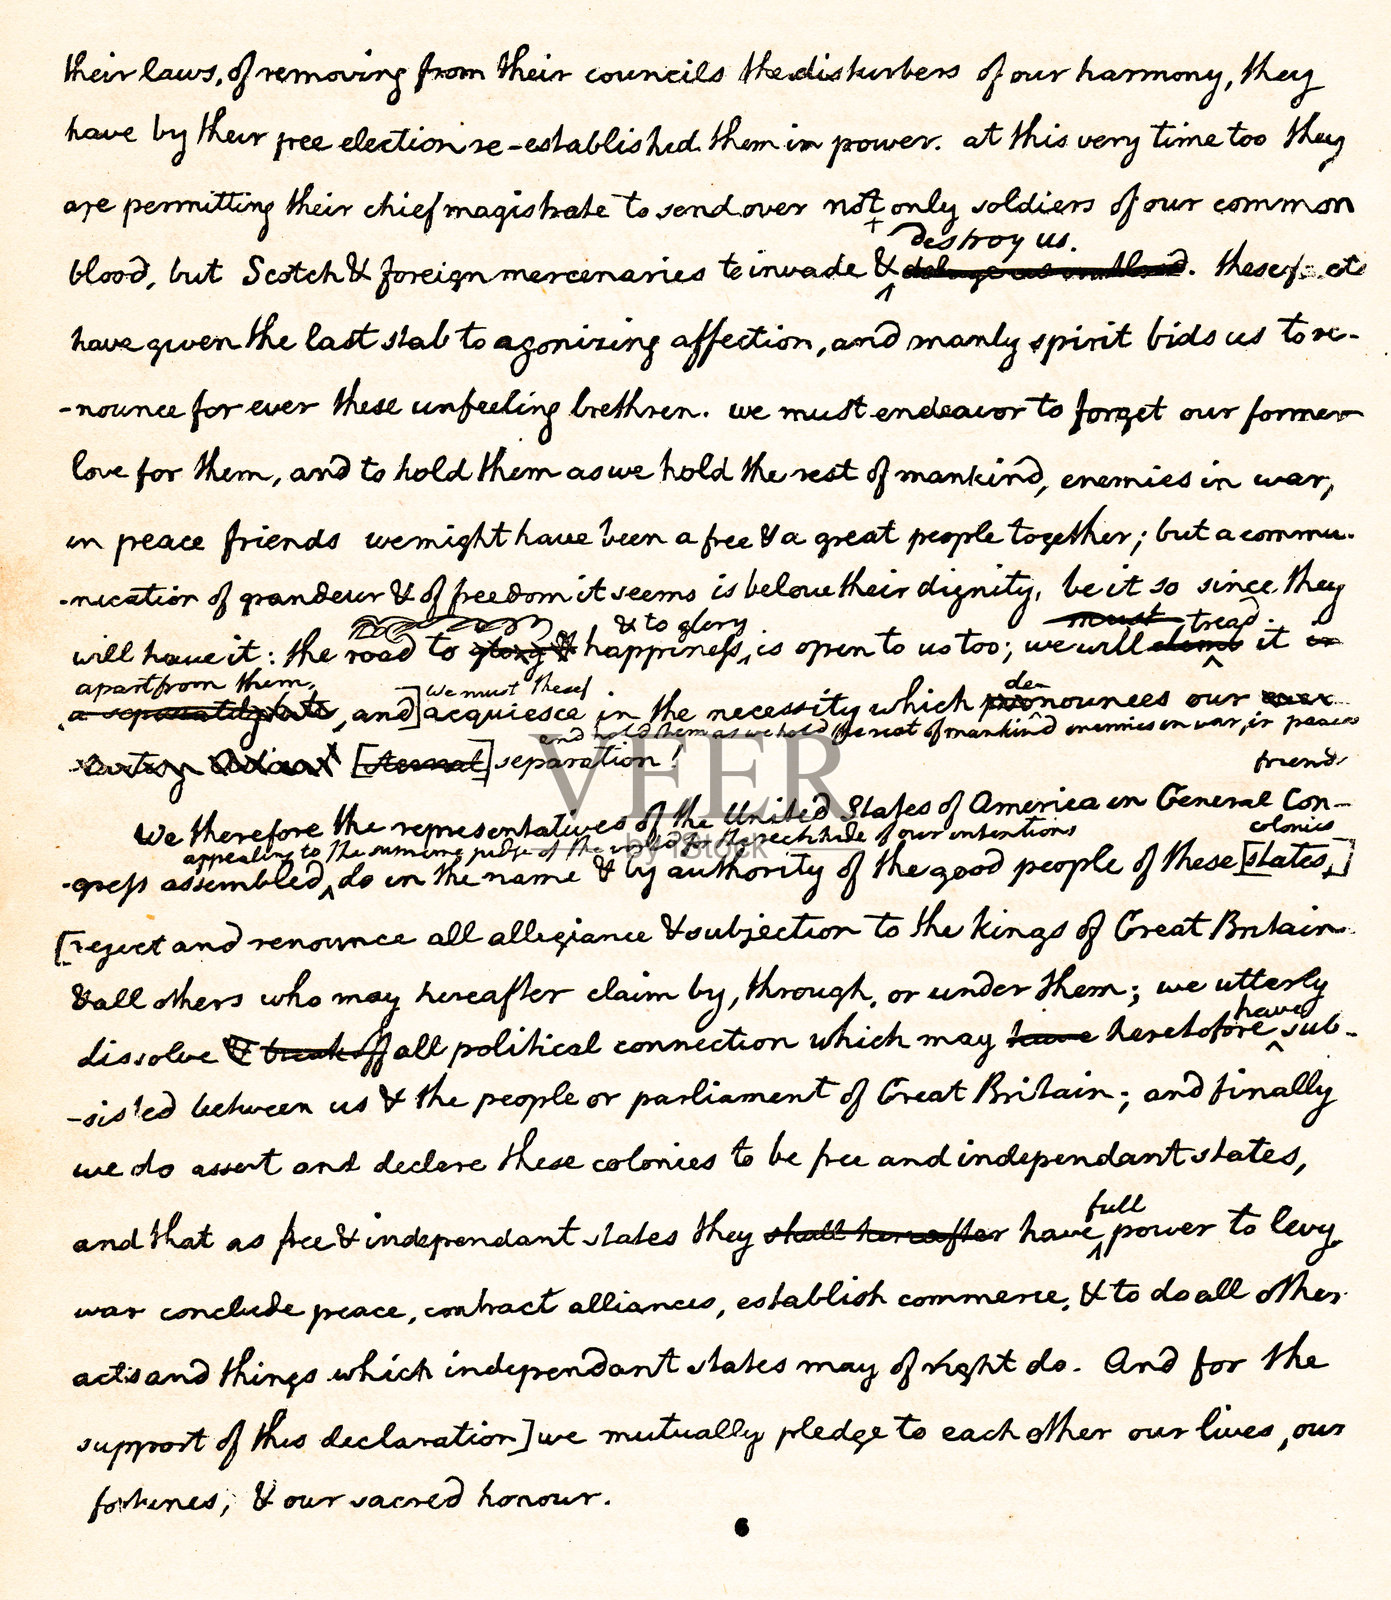 their laws, of removing from their councils the disturbers of our harmony, they
have by their free election re-established them in power. at this very time too they
are permitting their chief magistrate to send over not only soldiers of our common
destroy us.
blood, but Scotch & foreign mercenaries to invade & deluge us in blood. these
have given the last stab to agonizing affection, and manly spirit bids us to re-
-nounce for ever these unfeeling brethren. we must endeavor to forget our former
love for them, and to hold them as we hold the rest of mankind, enemies in war,
in peace friends we might have been a free & a great people together; but a commu-
-nication of grandeur & of freedom it seems is below their dignity. be it so since they
& to glory must tread
will have it: the road to glory & happiness, is open to us too; we will climb it in
apart from them, we must de-
a separately state, and] acquiesce in the necessity which pronounces our ever
and hold them as we hold the rest of mankind enemies in war, in peace
[eternal] separation! friends
We therefore the representatives of the United States of America in General Con-
appealing to the supreme judge of the world for the rectitude of our intentions colonies
-gress assembled, do in the name & by authority of the good people of these [states,]
[reject and renounce all allegiance & subjection to the kings of Great Britain
& all others who may hereafter claim by, through, or under them; we utterly
have
dissolve & break off all political connection which may have heretofore sub-
-sisted between us & the people or parliament of Great Britain; and finally
we do assert and declare these colonies to be free and independant states,
full
and that as free & independant states they shall hereafter have power to levy
war conclude peace, contract alliances, establish commerce, & to do all other
acts and things which independant states may of right do. And for the
support of this declaration] we mutually pledge to each other our lives, our
fortunes, & our sacred honour.
6
VEER
by iStock